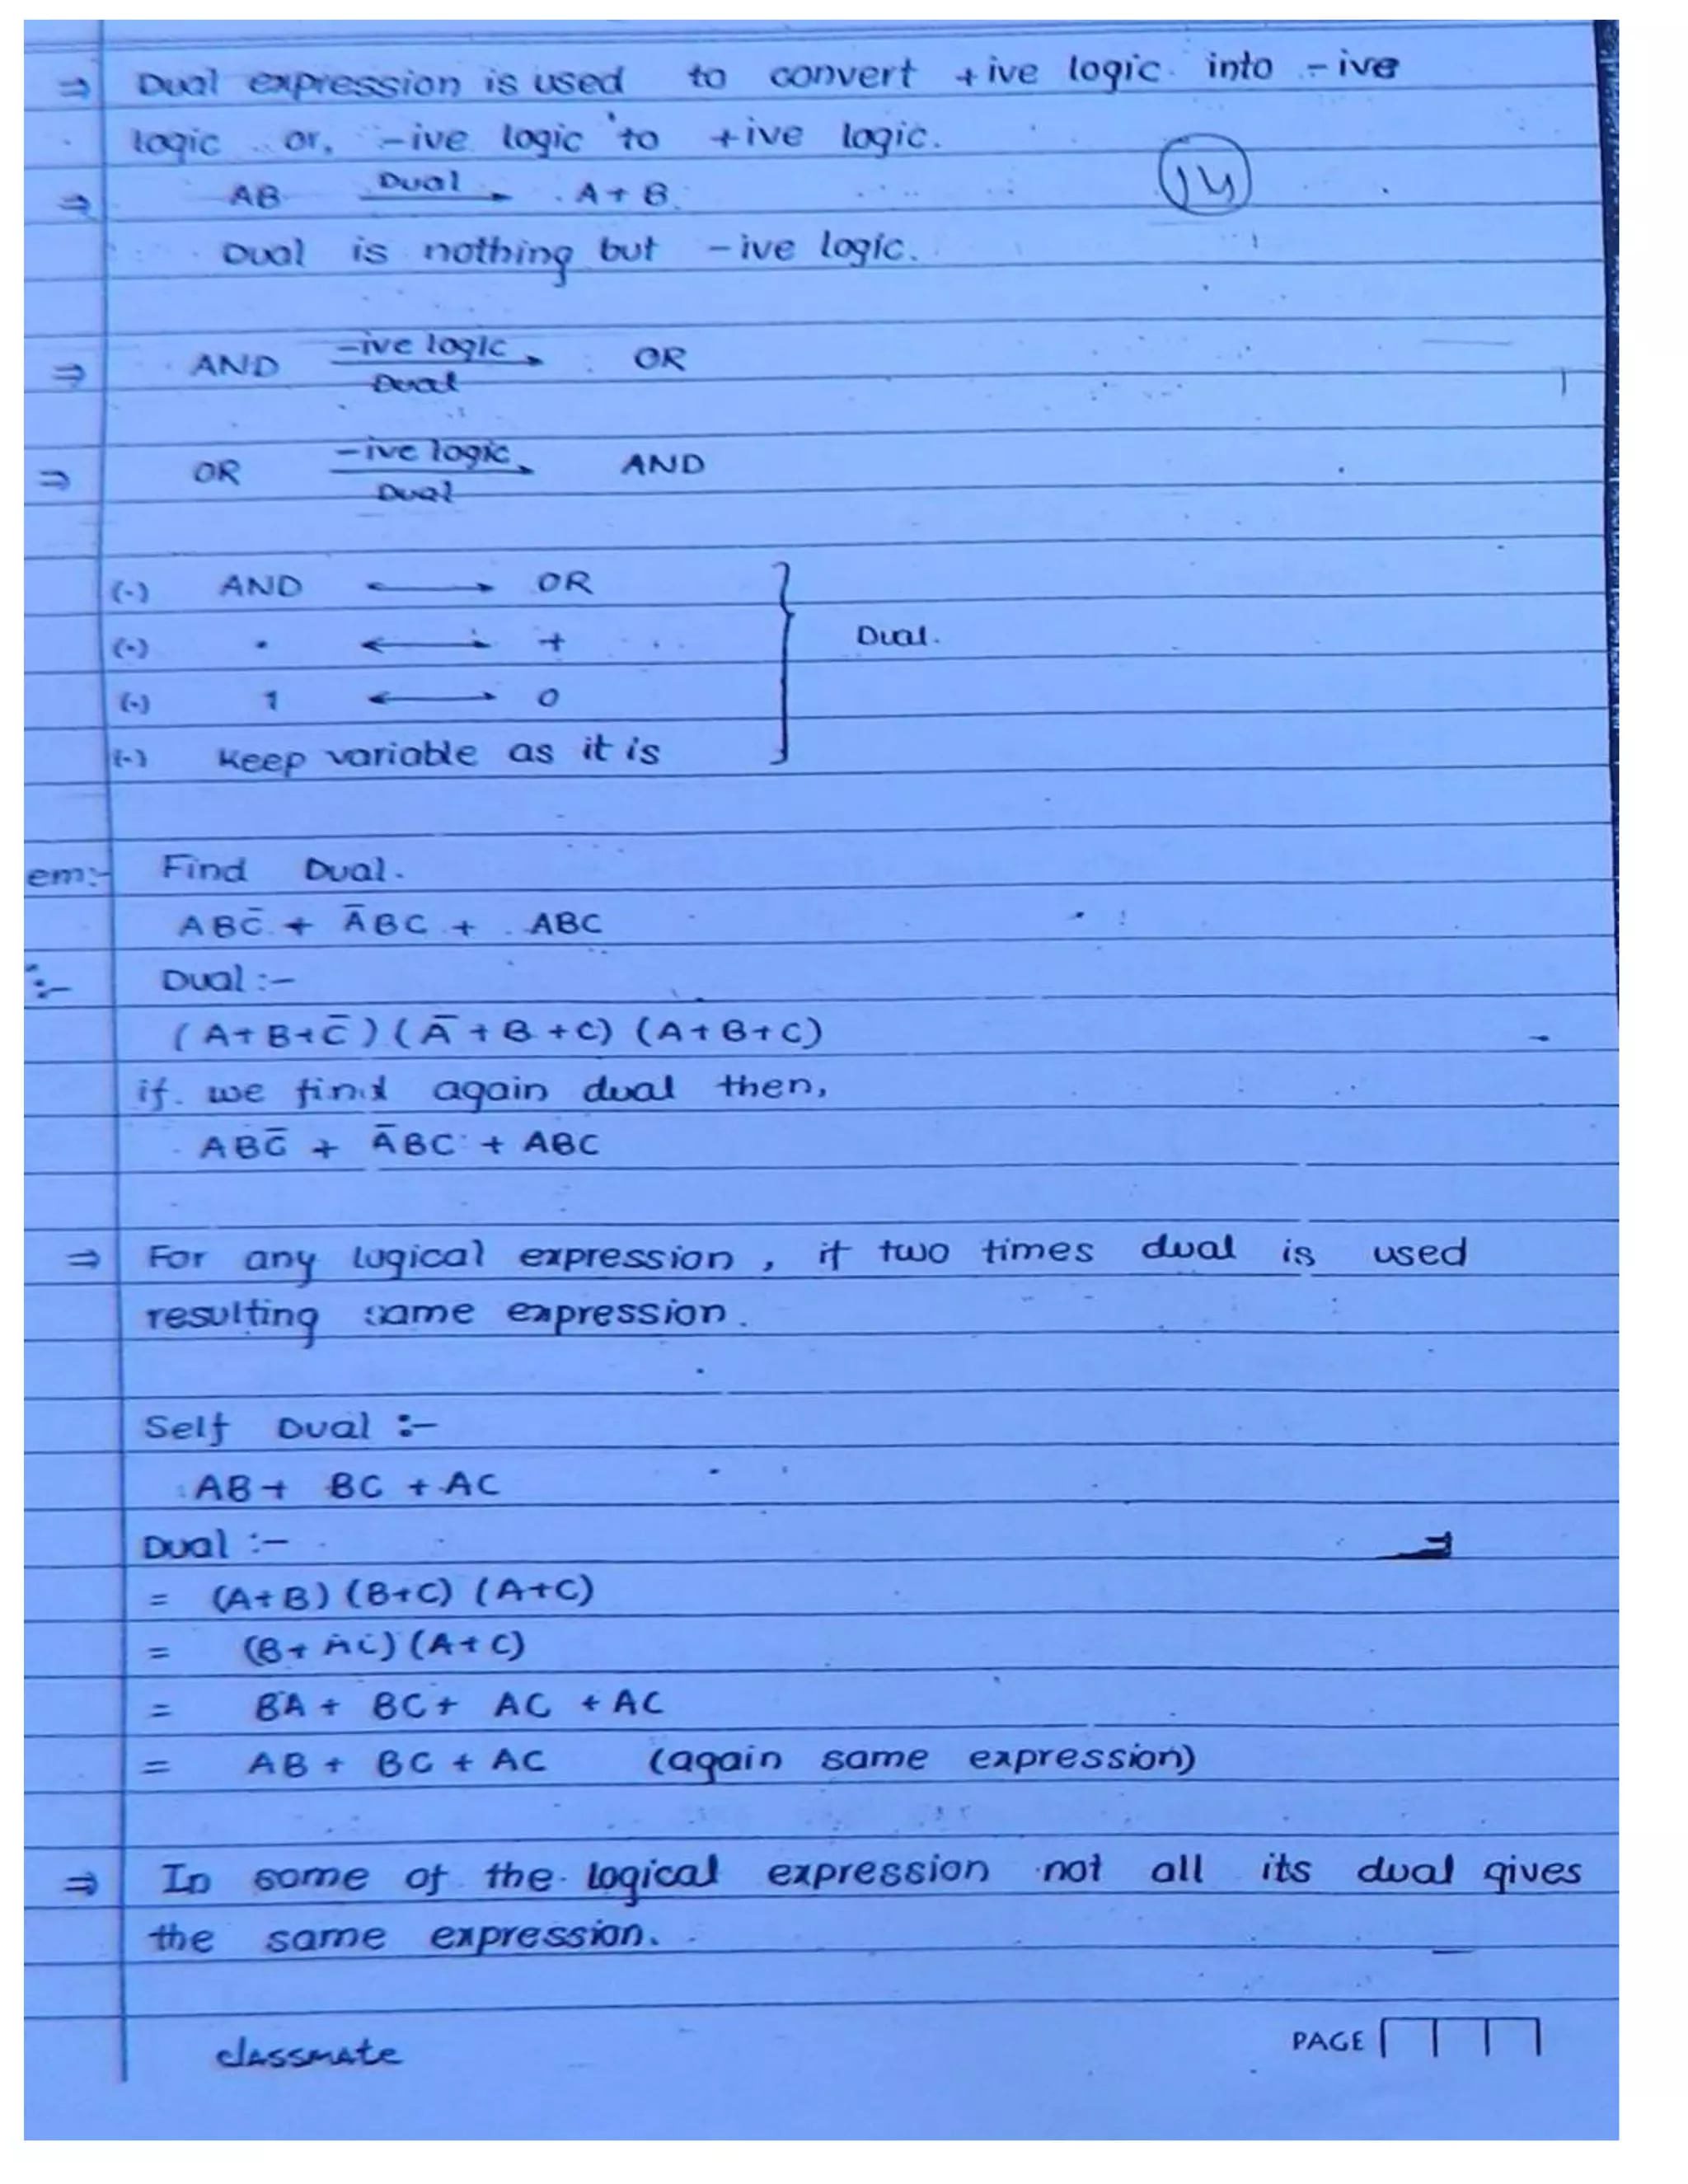 ⇒ Dual expression is used to convert +ive logic into -ive
logic or, -ive logic to +ive logic.
14
⇒ AB Dual → A + B
Dual is nothing but -ive logic.
⇒ AND -ive logic → Dual OR
⇒ OR -ive logic → Dual AND
(·) AND ⟷ OR
(·) • ⟷ + Dual.
(·) 1 ⟷ 0
(·) Keep variable as it is
em:- Find Dual.
ABC̄ + ĀBC + ABC
:- Dual :-
(A+B+C̄)(Ā+B+C)(A+B+C)
if we find again dual then,
ABC̄ + ĀBC + ABC
⇒ For any logical expression, if two times dual is used
resulting same expression.
Self Dual :-
AB + BC + AC
Dual :-
= (A+B)(B+C)(A+C)
= (B+AC)(A+C)
= BA + BC + AC + AC
= AB + BC + AC (again same expression)
⇒ In some of the logical expression not all its dual gives
the same expression.
classmate
PAGE